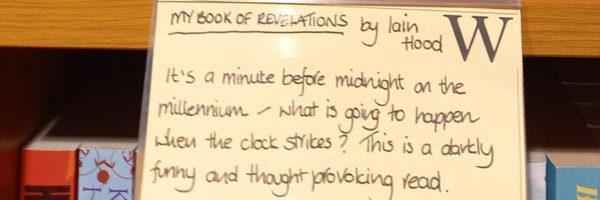 MY BOOK OF REVELATIONS by Iain
Hood
W
It's a minute before midnight on the
millennium – what is going to happen
when the clock strikes? This is a darkly
funny and thought provoking read.